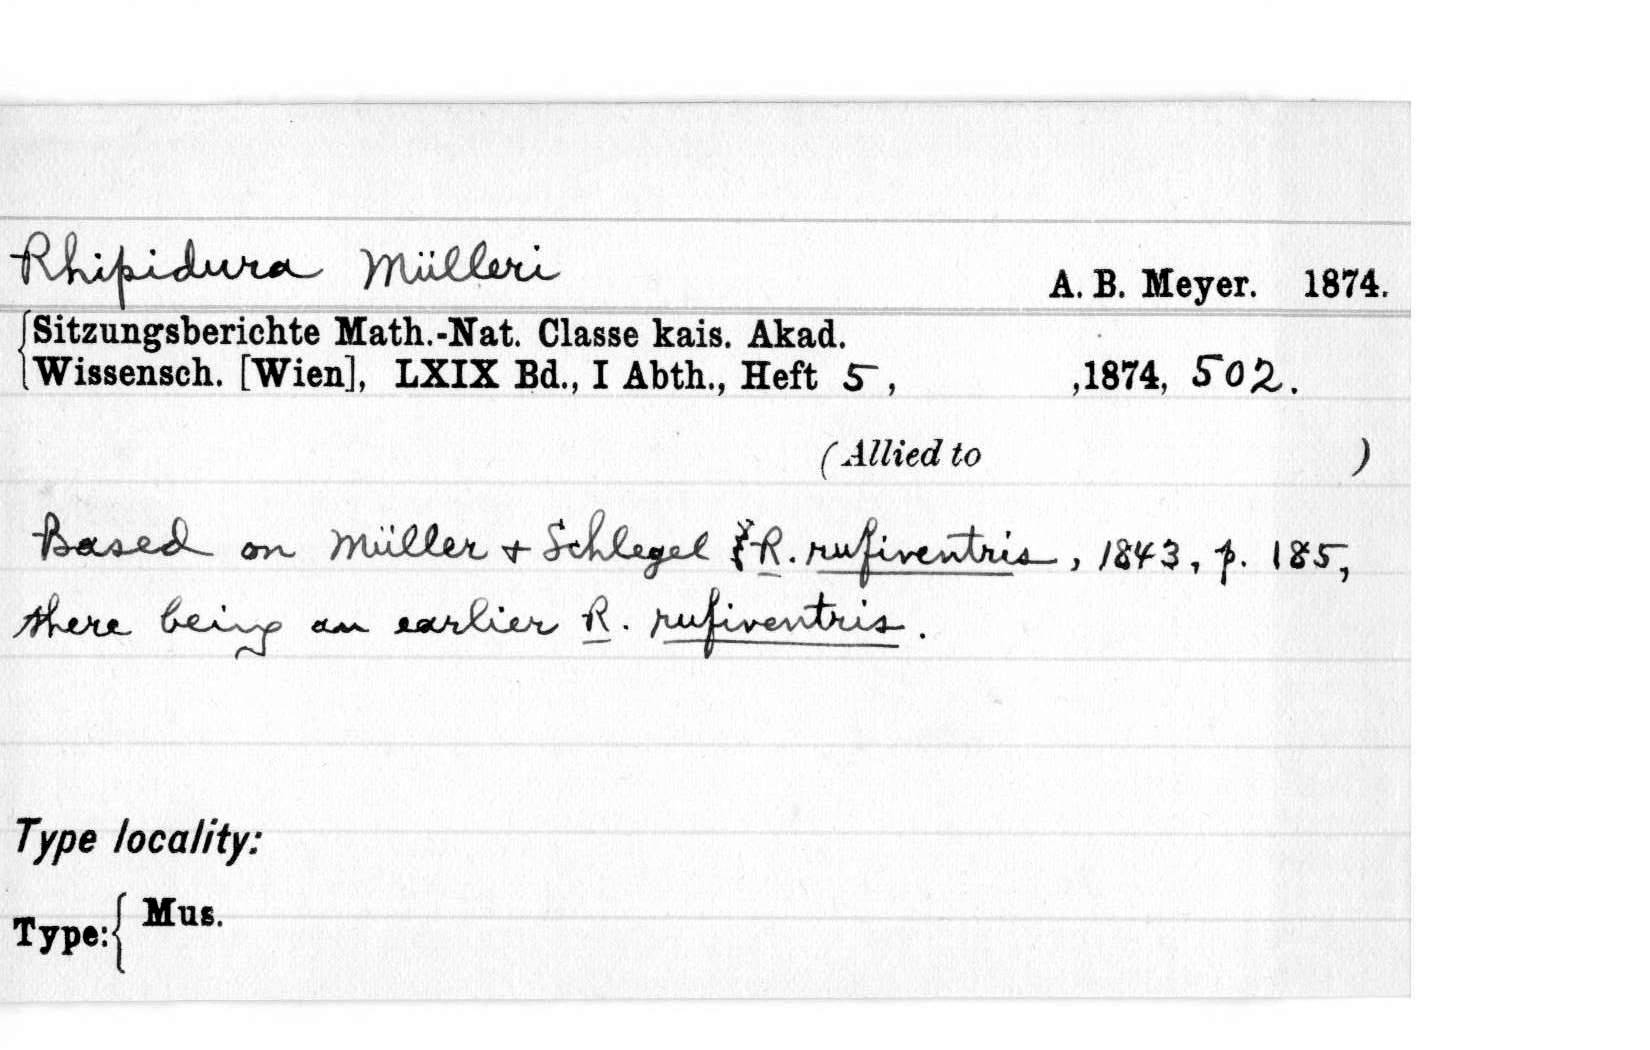 Rhipidura Mülleri A. B. Meyer. 1874.
Sitzungsberichte Math.-Nat. Classe kais. Akad.
Wissensch. [Wien], LXIX Bd., I Abth., Heft 5, ,1874, 502.
(Allied to )
Based on Müller + Schlegel R. rufiventris, 1843, p. 185,
there being an earlier R. rufiventris.
Type locality:
Type: Mus.